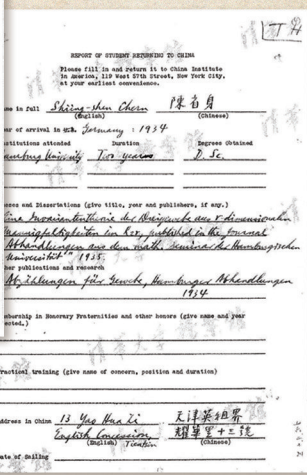 REPORT OF STUDENT RETURNING TO CHINA
Please fill in and return it to China Institute
in America, 119 West 57th Street, New York City,
at your earliest convenience.
ame in full Shiing-shen Chern 陳省身
(English) (Chinese)
ar of arrival in U.S. Germany: 1934
nstitutions attended Duration Degrees Obtained
amburg University Two years D. Sc.
eces and Dissertations (give title, year and publishers, if any.)
Eine Invariantentheorie der Dreigewebe aus r-dimensionalen
Mannigfaltigkeiten im R2r, published in the Journal
Abhandlungen aus dem math. seminar der Hamburgischen
Universität" 1935.
her publications and research
Abzählungen für Gewebe, Hamburger Abhandlungen
1934
embership in Honorary Fraternities and other honors (give name and year
ected.)
ractical training (give name of concern, position and duration)
address in China 13 Yao Hua Li 天津英租界
English Concession, Tientsin 耀華里十三號
(English) (Chinese)
ate of Sailing
清華大學檔案館